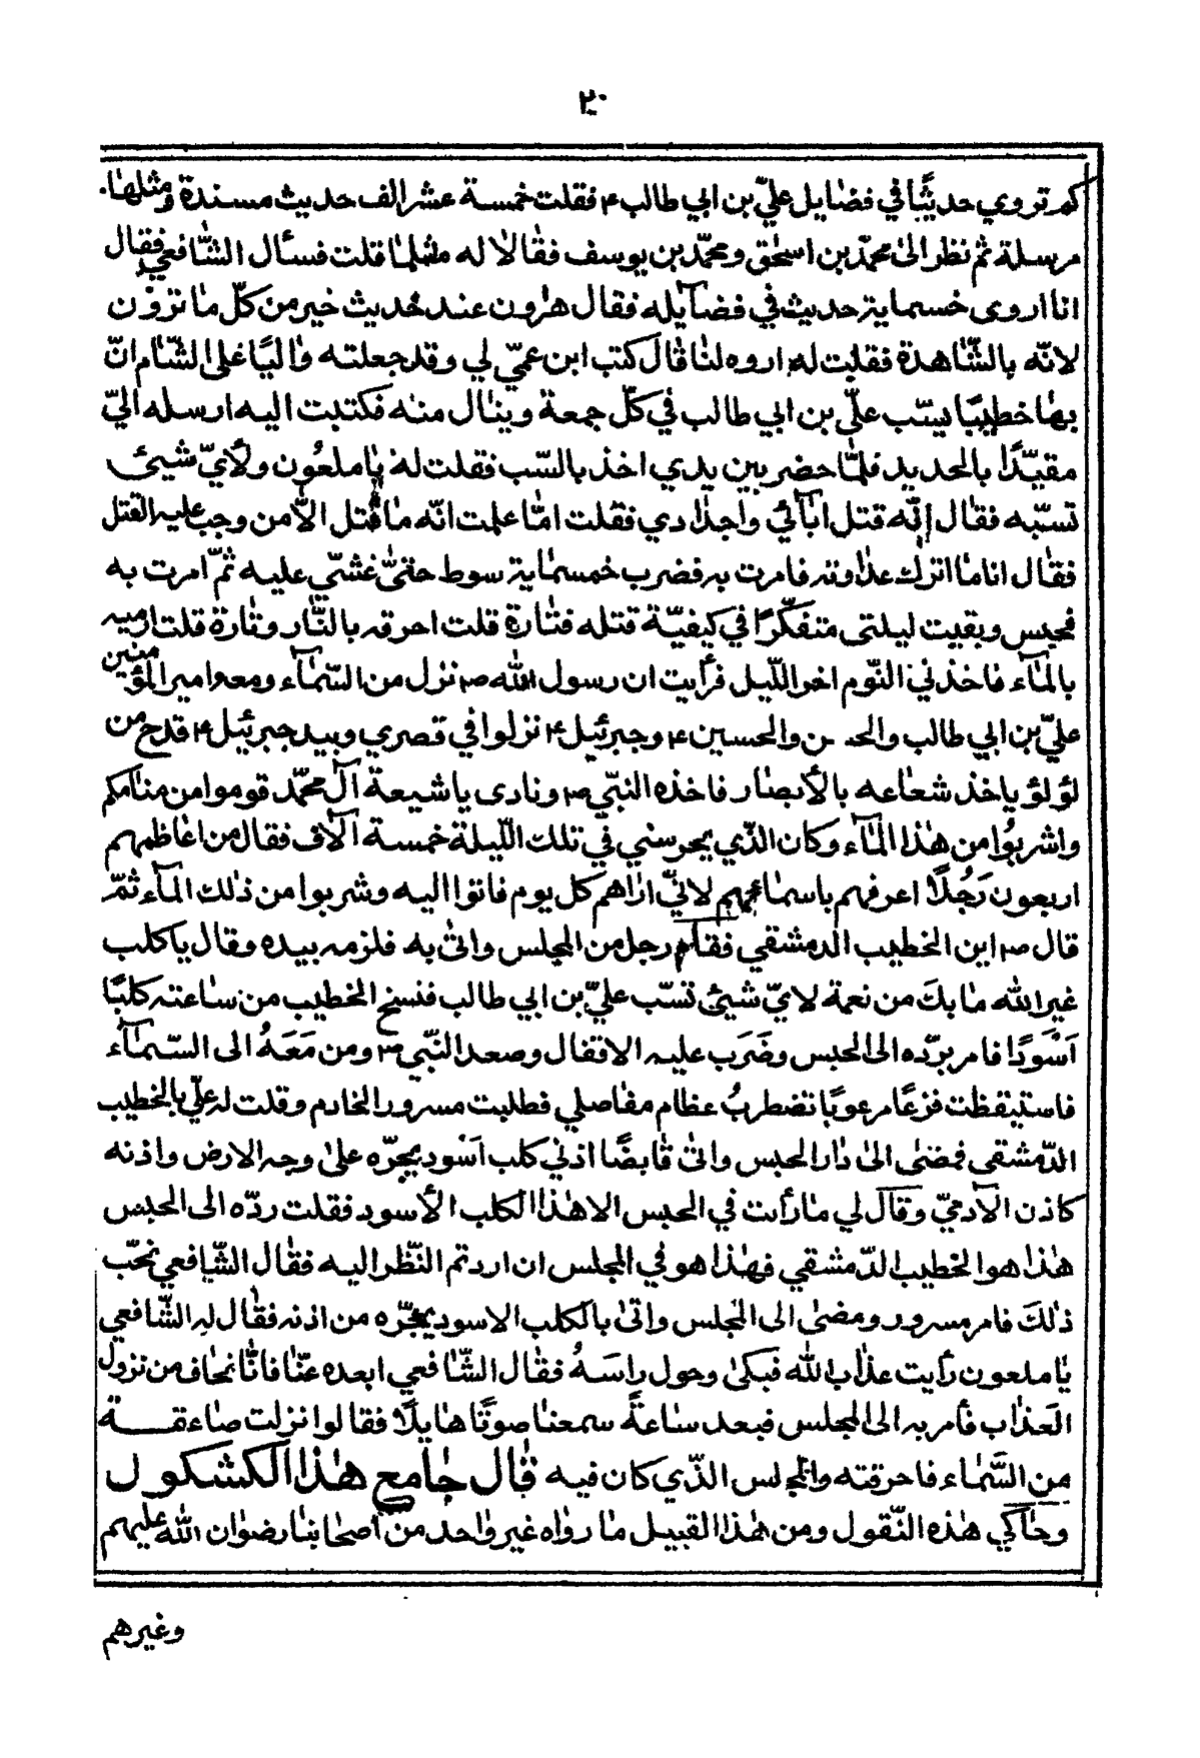 ٢٠
كم تروي حديثًا في فضايل عليّ بن ابي طالب ع فقلت خمسة عشر الف حديث مسندة ومثلها
مرسلة ثم نظر الى محمّد بن اسحٰق ومحمّد بن يوسف فقالا له مثلما قلت فسأل الشّافعي فقال
انا اروى خمسماية حديث في فضآيله فقال هٰرون عندي حديث خير من كلّ ما تروُن
لانّه بالشّاهدة فقلت له اروه لنا قال كتب ابن عمّي لي وقد جعلته واليًا على الشّام انّ
بها خطيبًا يسّب عليّ بن ابي طالب في كلّ جمعة وينال منه فكتبت اليه ارسله اليّ
مقيّدًا بالحديد فلمّا حضر بين يدي اخذ بالسّب فقلت له يا ملعُون ولأيّ شيئ
تسّبه فقال إنّه قتل ابآئي واجدادي فقلت امّا علمت انّه ما قتل الّا من وجب عليه القتل
فقال انا ما اترك عداوته فامرت به فضرب خمسماية سوط حتىّ غشّي عليه ثمّ امرت به
فحبس وبقيت ليلتى متفكّرًا في كيفيّة قتله فتارة قلت احرقه بالنّار وتارة قلت ارميه
بالمآء فاخذني النّوم اخر اللّيل فرأيت ان رسول الله ص نزل من السّمآء ومعه امير المؤمنين
عليّ بن ابي طالب والحسن والحسين ع وجبرئيل ع نزلوا في قصري وبيد جبرئيل ع قدح من
لؤلؤ ياخذ شعاعه بالأبصار فاخذه النبّي ص ونادى يا شيعة آل محمّد قوموا من منامكم
واشربُوا من هٰذا المآء وكان الذّي يحرسني في تلك اللّيلة خمسة آلاف فقال من اعاظمهم
اربعون رَجُلًا اعرفهم باسمائهم لانيّ اراهم كل يوم فاتوا اليه وشربوا من ذلك المآء ثمّ
قال ص اين الخطيب الدمشقي فقام رجل من المجلس واتىٰ به فلزمه بيده وقال يا كلب
غير الله ما بكَ من نعمة لايّ شيئ تسّب عليّ بن ابي طالب فنسخ الخطيب من ساعته كلبًا
اَسْودًا فامر بردّه الى الحبس وضَرَب عليه الاقفال وصعد النبّي ص ومن مَعَهُ الى السّمآء
فاستيقظت فزعًا مرعوبًا تضطربُ عظام مفاصلي فطلبت مسرور الخادم وقلت له عليّ بالخطيب
الدّمشقي فمضىٰ الىٰ دار الحبس واتىٰ قابضًا اذني كلب اَسْود يجرّه علىٰ وجه الارض واذنه
كاذن الآدميّ وقال لي ما رأيت في الحبس الا هٰذا الكلب الأسود فقلت ردّه الى الحبس
هٰذا هوا لخطيب الدّمشقي فهٰذا هو في المجلس ان اردتم النّظر اليه فقال الشّافعي نحبّ
ذٰلكَ فامر مسرور ومضىٰ الى المجلس واتىٰ بالكلب الاسود يجرّه من اذنه فقال له الشّافعي
يا ملعون رأيت عذاب الله فبكىٰ وحول راسَهُ فقال الشّافعي ابعده عنّا فانّا نخاف من نزول
العذاب فأمر به الى المجلس فبعد ساعةً سمعنا صوتًا هايلًا فقالوا نزلت صاعقة
من السّمآء فاحرقته والمجلس الذّي كان فيه قال جامع هٰذا الكشكول
وحاكي هٰذه النّقول ومن هٰذا القبيل ما رواه غير واحد من اصحابنا رضوان الله عليهم
وغيرهم